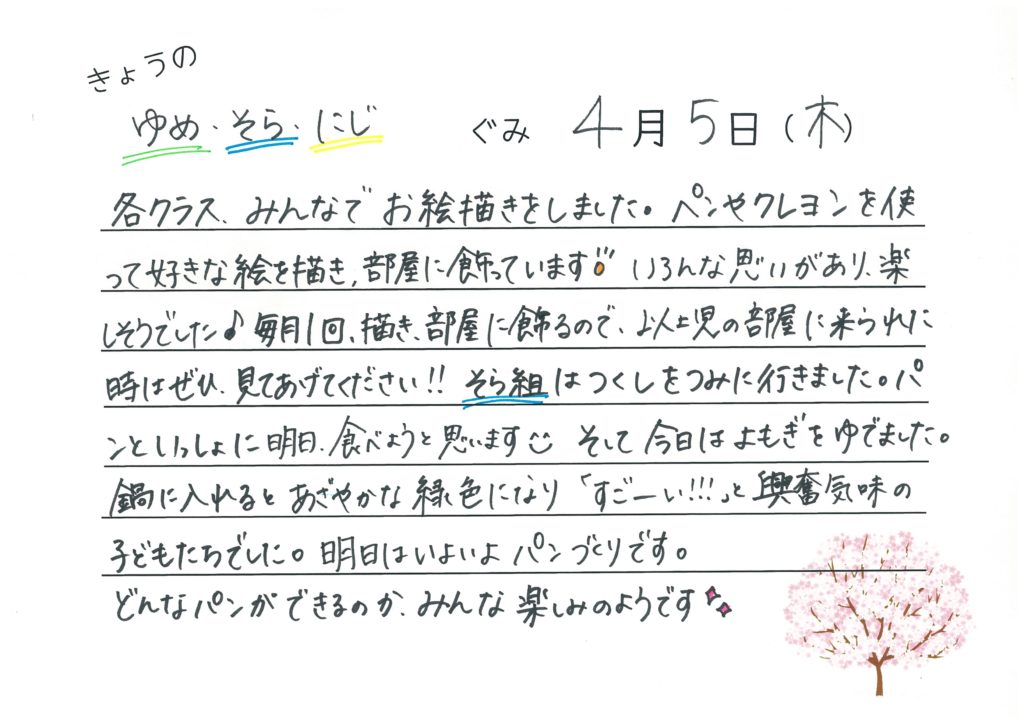 きょうの
ゆめ・そら・にじ ぐみ 4月5日(木)
各クラス、みんなでお絵描きをしました。ペンやクレヨンを使
って好きな絵を描き、部屋に飾っています!! いろんな思いがあり、楽
しそうでした♪ 毎月1回、描き、部屋に飾るので、以上児の部屋に来られた
時はぜひ、見てあげてください!! そら組はつくしをつみに行きました。パ
ンといっしょに明日、食べようと思います☺ そして今日はよもぎをゆでました。
鍋に入れるとあざやかな緑色になり「すごーい!!!」と興奮気味の
子どもたちでした。明日はいよいよパンづくりです。
どんなパンができるのか、みんな楽しみのようです